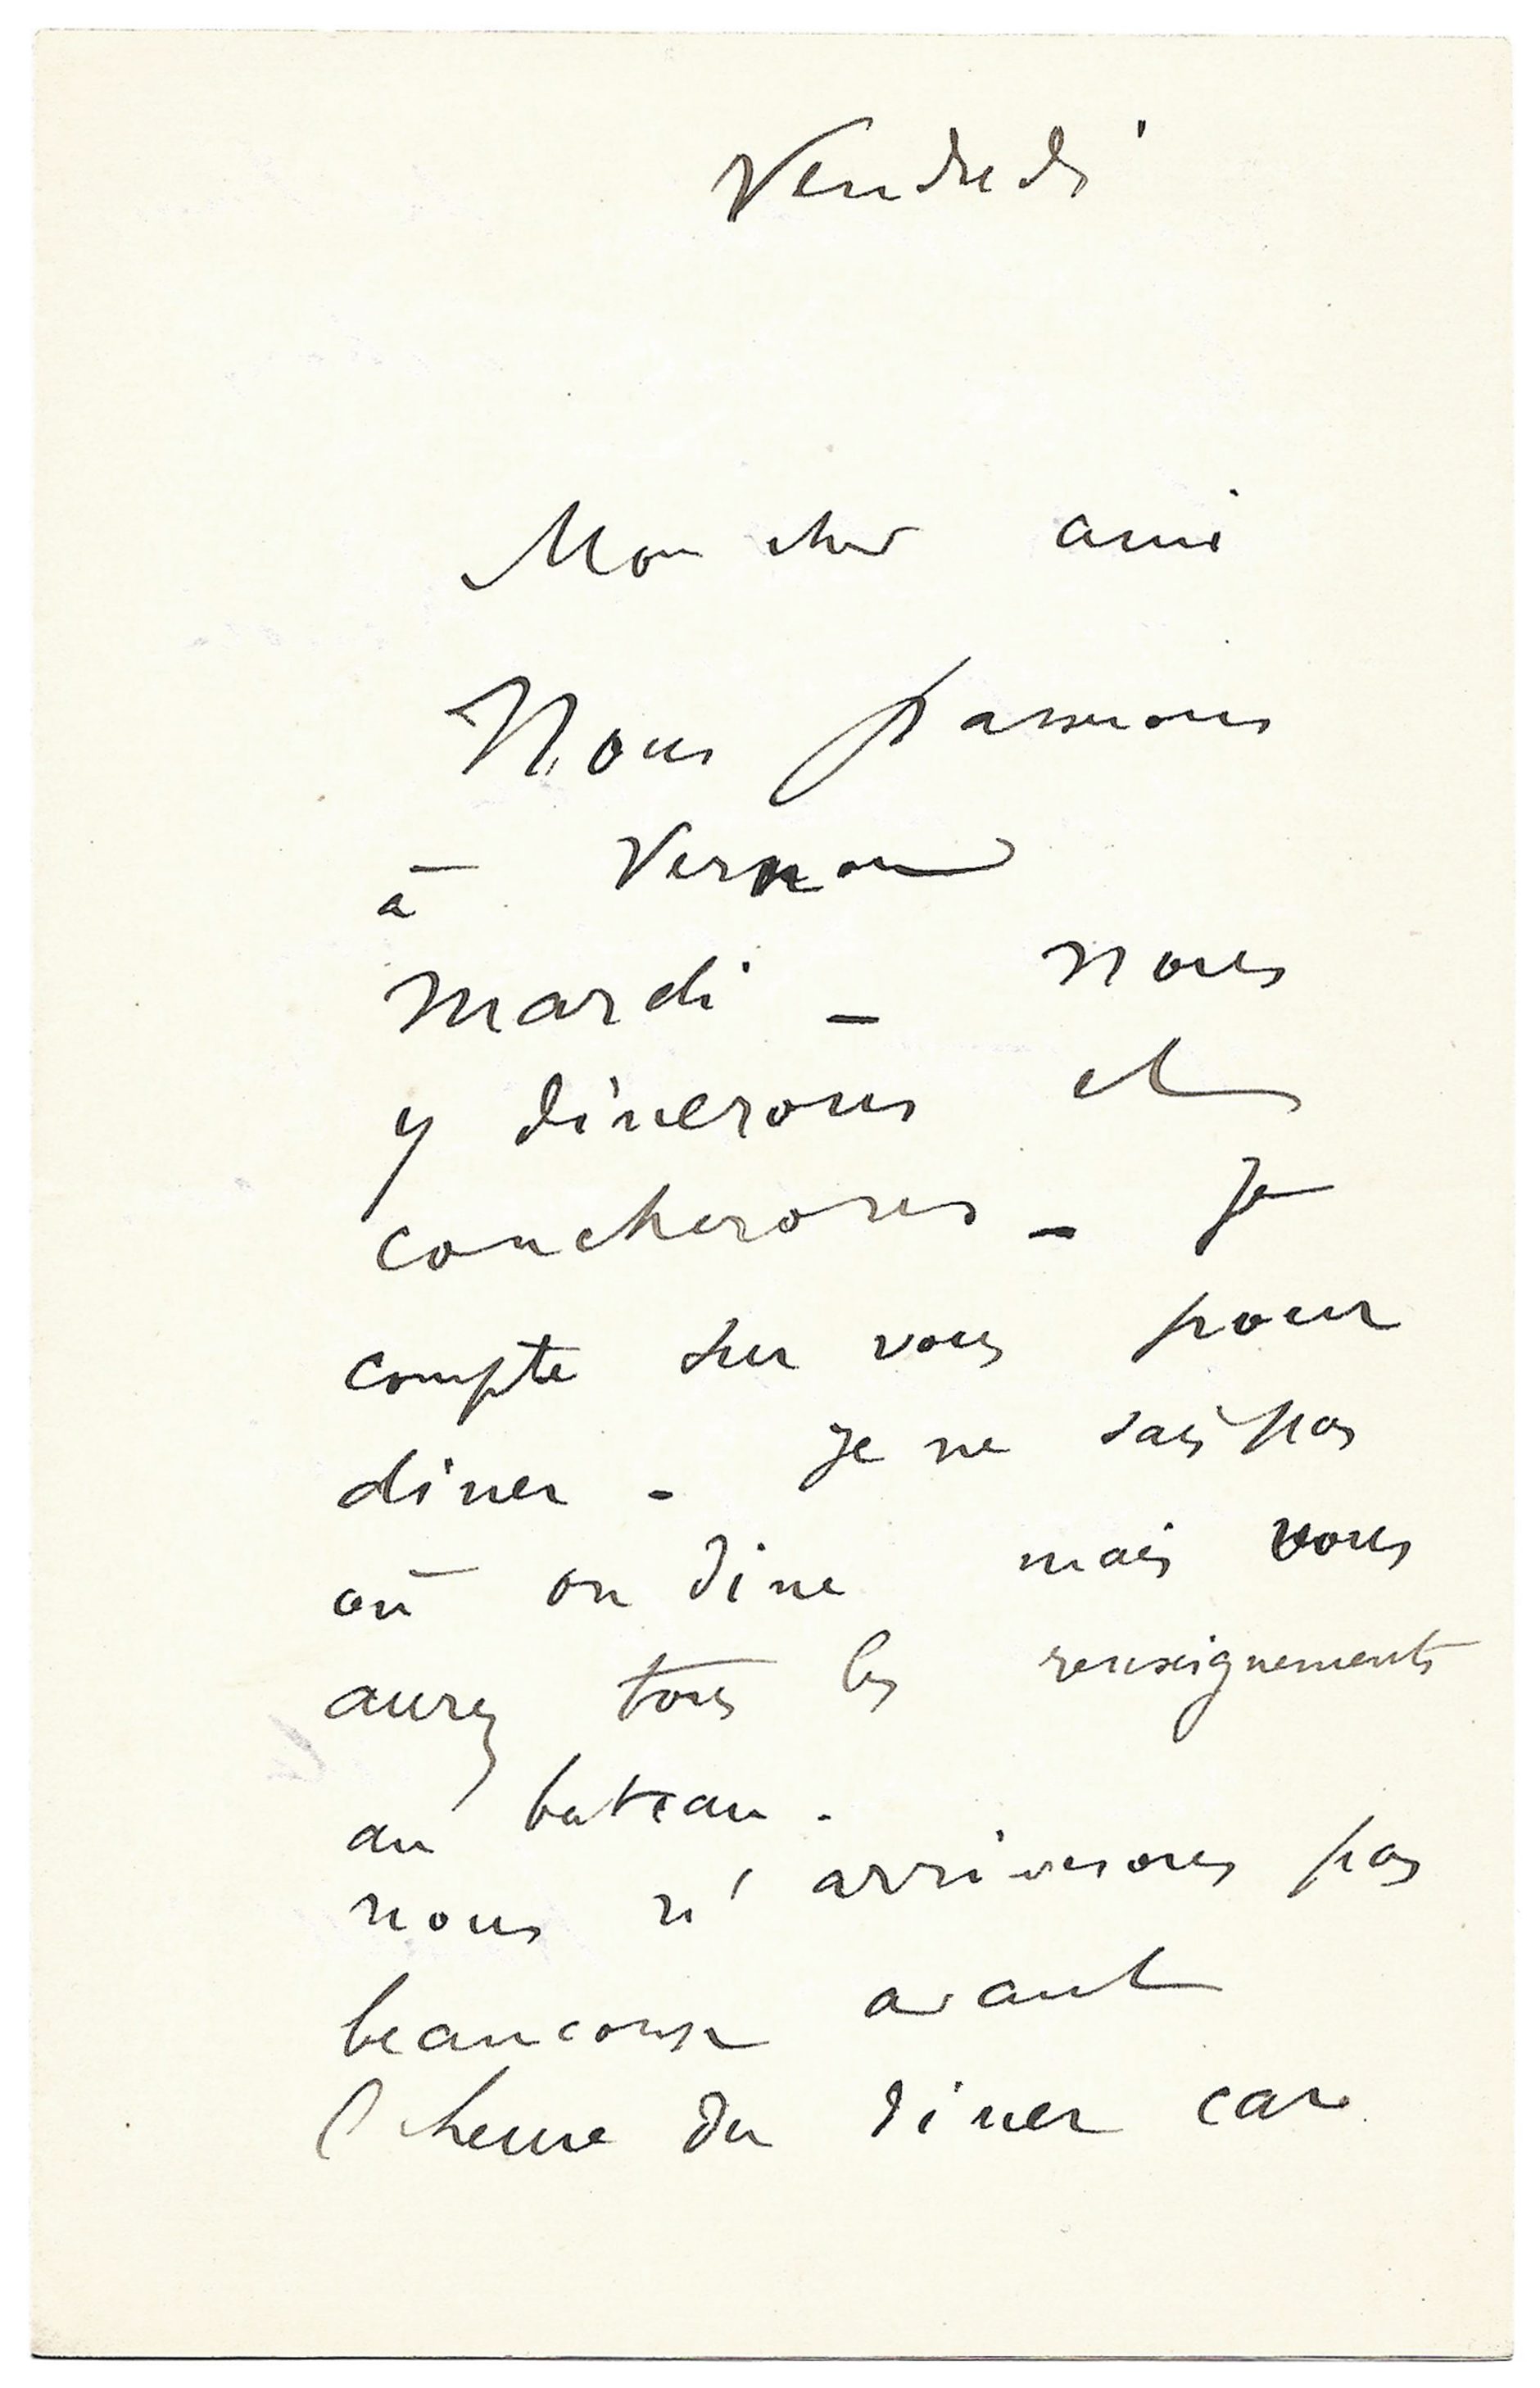 Vendredi
Mon cher ami
Nous passerons
à Vernon
mardi _ nous
y dinerons et
coucherons _ Je
compte sur vous pour
diner - je ne sais pas
où on dine mais vous
aurez tous les renseignements
au bateau.
nous n'arriverons pas
beaucoup avant
l'heure du diner car